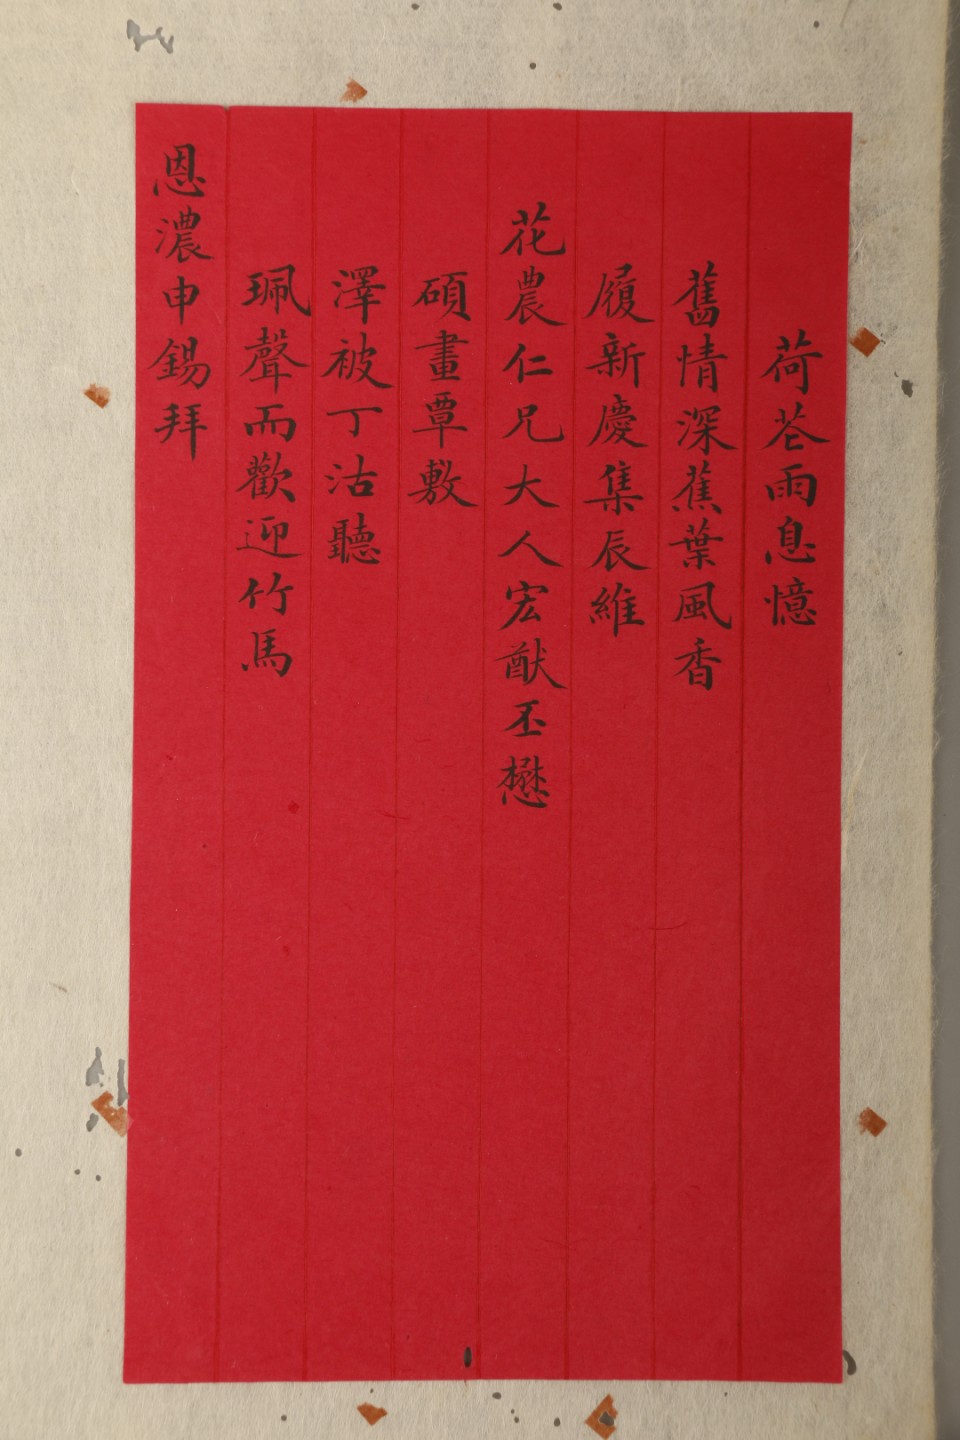 荷花雨息憶
舊情深蕉葉風香
履新慶集辰維
花農仁兄大人宏猷丕懋
碩畫覃敷
澤被丁沽聽
珮聲而歡迎竹馬
恩濃申錫拜